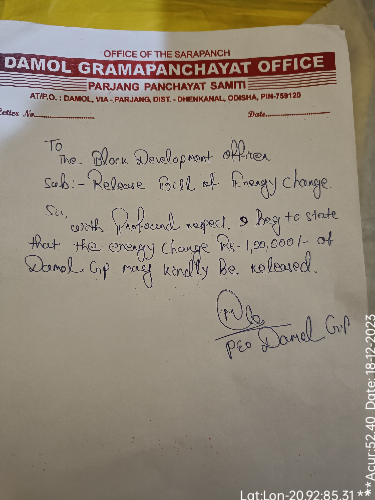 OFFICE OF THE SARAPANCH
DAMOL GRAMAPANCHAYAT OFFICE
PARJANG PANCHAYAT SAMITI
AT/P.O. : DAMOL, VIA - PARJANG, DIST. - DHENKANAL, ODISHA, PIN-759120
Letter No.
Date
To
The Block Development officer
Sub:- Release Bill of Energy Change.
Sir,
with Profound respect, I beg to state
that the energy change Rs- 1,20,000/- of
Damol Gp may kindly be released.
PEO Damol Gp
Lat:Lon-20.92:85.31 *** Acur:52.40 Date:18-12-2023